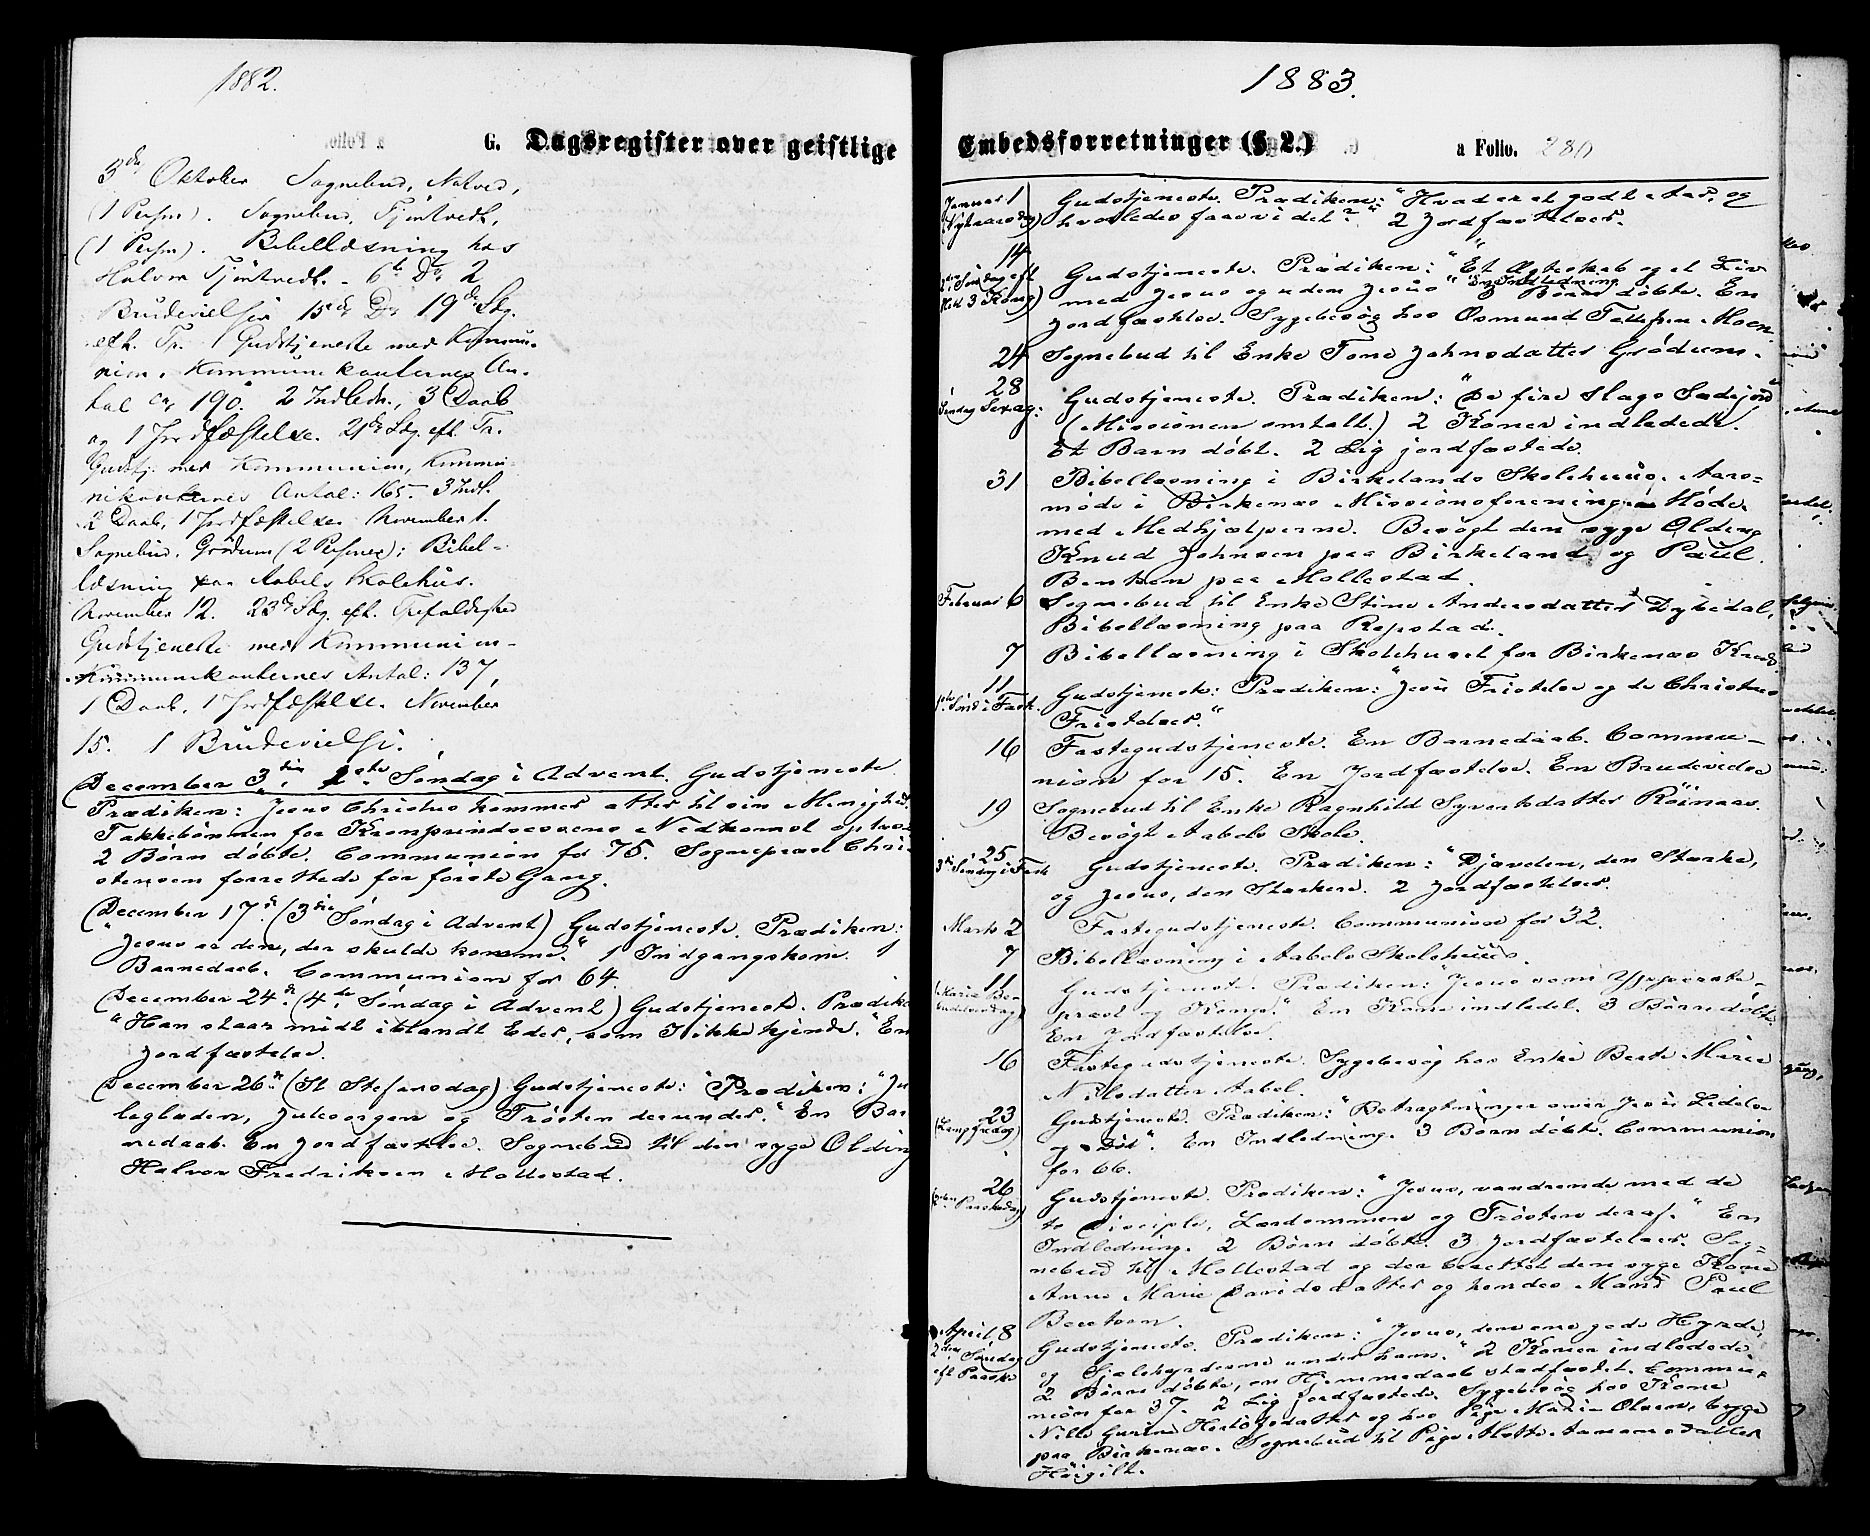 1882.
G. Dagsregister over geistlige
3die Oktober Sognebud, Natved,
(1 Person). Sognebud, Tjöntvedt,
(1 Person). Bibellæsning hos
Halvor Tjöntvedt. 6te Do 2
Brudevielser 15de Do 19de Sdg.
eft. Tr. 1 Gudstjeneste med Kommu-
nion. Kommunikanternes An-
tal er 190. 2 Indledn., 3 Daab
og 1 Jordfæstelse. 21de Sdg. eft. Tr.
Gudstj. med Kommunion, Kommu-
nikanternes Antal: 165. 3 Indl.
2 Daab, 1 Jordfæstelse. November 1.
Sognebud, Grødum (2 Personer); Bibel-
læsning paa Aabels Skolehus.
November 12. 23de Sdg. eft. Trefoldighed
Gudstjeneste med Kommunion
Kommunikanternes Antal: 137,
1 Daab, 1 Jordfæstelse. November
15. 1 Brudevielse.
(December 3die 1ste Søndag i Advent. Gudstjeneste
Prædiken: Jesus Christus kommer atter til sin Menighed.
Takkebønnen for Kronprindsessens Nedkomst oplæst
2 Børn døbte. Communion for 75. Sognepræst Chri-
stensen forrettede for første Gang.
(December 17de (3die Søndag i Advent) Gudstjeneste. Prædiken:
"Jesus er den, der skulde komme." 1 Indgangskone. 1
Barnedaab. Communion for 64.
(December 24de (4de Søndag i Advent) Gudstjeneste. Prædiken
"Han staar midt iblandt Eder, som I ikke kjende." En
Jordfæstelse.
(December 26de (St Stefansdag) Gudstjeneste: Prædiken: "Ju-
leglæden, Julesorgen og Trøsten derunder." En Bar-
nedaab. En Jordfæstelse. Sognebud til den syge Olding
Halvor Fredriksen Mollestad.
1883.
Embedsforretninger (§ 2.)
a Folio. 280
Januar 1 Gudstjeneste. Prædiken: "Hvad er et godt Aar, og
(Nytaarsdag) hvorledes faar vi det?" 2 Jordfæstelser.
14
2den Søndag eft. Gudstjeneste. Prædiken: "Et Ægteskab og et Liv
Hel. 3 Kong.) med Jesus og uden Jesus" En Indledning. 3 Børn døbte. En
Jordfæstelse. Sygebesøg hos Osmund Tellefsen Moen.
24 Sognebud til Enke Tone Johnsdatter Grødum.
28 Gudstjeneste. Prædiken: "De fire Slags Sædejord"
Søndag Sexag: (Missionen omtalt.) 2 Koner indledede.
Et Barn døbt. 2 Lig jordfæstede.
31 Bibellæsning i Birkelands Skolehuus. Aars-
møde i Birkenæs Missionsforening. Møde
med Medhjælperne. Besøgt den syge Olding
Knud Johnsen paa Birkeland og Paul
Bentsen paa Mollestad.
Februar 6 Sognebud til Enke Stine Andersdatter Dybedal,
Bibellæsning paa Repstad.
7 Bibellæsning i Skolehuset for Birkenæs Kreds
11 Gudstjeneste: Prædiken: "Jesu Fristelse og de Christnes
1ste Sønd. i Fast. Fristelser."
16 Fastegudstjeneste. En Barnedaab. Commu-
nion for 15. En Jordfæstelse. En Brudevielse
19 Sognebud til Enke Ragnhild Syvertsdatter Röinaas.
Besøgt Aabels Skole.
25 Gudstjeneste. Prædiken: "Djævelen, den Stærke,
3die Søndag i Fast. og Jesus, den Stærkere. 2 Jordfæstelser.
Marts 2 Fastegudstjeneste. Communion for 32.
7 Bibellæsning i Aabels Skolehuus.
11 Gudstjeneste. Prædiken: "Jesus som Ypperste-
(Mariæ Be- præst og Konge." En Kone indledet. 3 Børn døbte.
budelsesdag) En Jordfæstelse.
16 Fastegudstjeneste. Sygebesøg hos Enke Berte Marie
Nilsdatter Aabel.
23 Gudstjeneste. Prædiken: "Betragtninger over Jesu Lidelse
(Langfredag) og Død". En Indledning. 3 Børn døbte. Communion
for 66.
26 Gudstjeneste. Prædiken: "Jesus, vandrende med de
(2den Paaskedag) to Disciple, Lærdommen og Trøsten deraf." En
Indledning. 2 Børn døbte. 3 Jordfæstelser. Sog-
nebud til Mollestad og der berettet den syge Kone
Anne Marie Davidsdatter og hendes Mand Paul
Bentsen.
April 8 Gudstjeneste. Prædiken: "Jesus, den ene gode Hyrde,
2den Søndag og Sjælehyrderne under ham." 2 Koner indledede
eft Paaske 2 Børn døbte, en Hjemmedaab stadfæstet. Commu-
nion for 37. 2 Lig jordfæstede. Sygebesøg hos Kone
Nille Gurine Herlofsdatter og hos Pige Marie Olsen, begge
paa Birkenæs. Sognebud til Pige Mette Aamundsdatter
Höigilt.